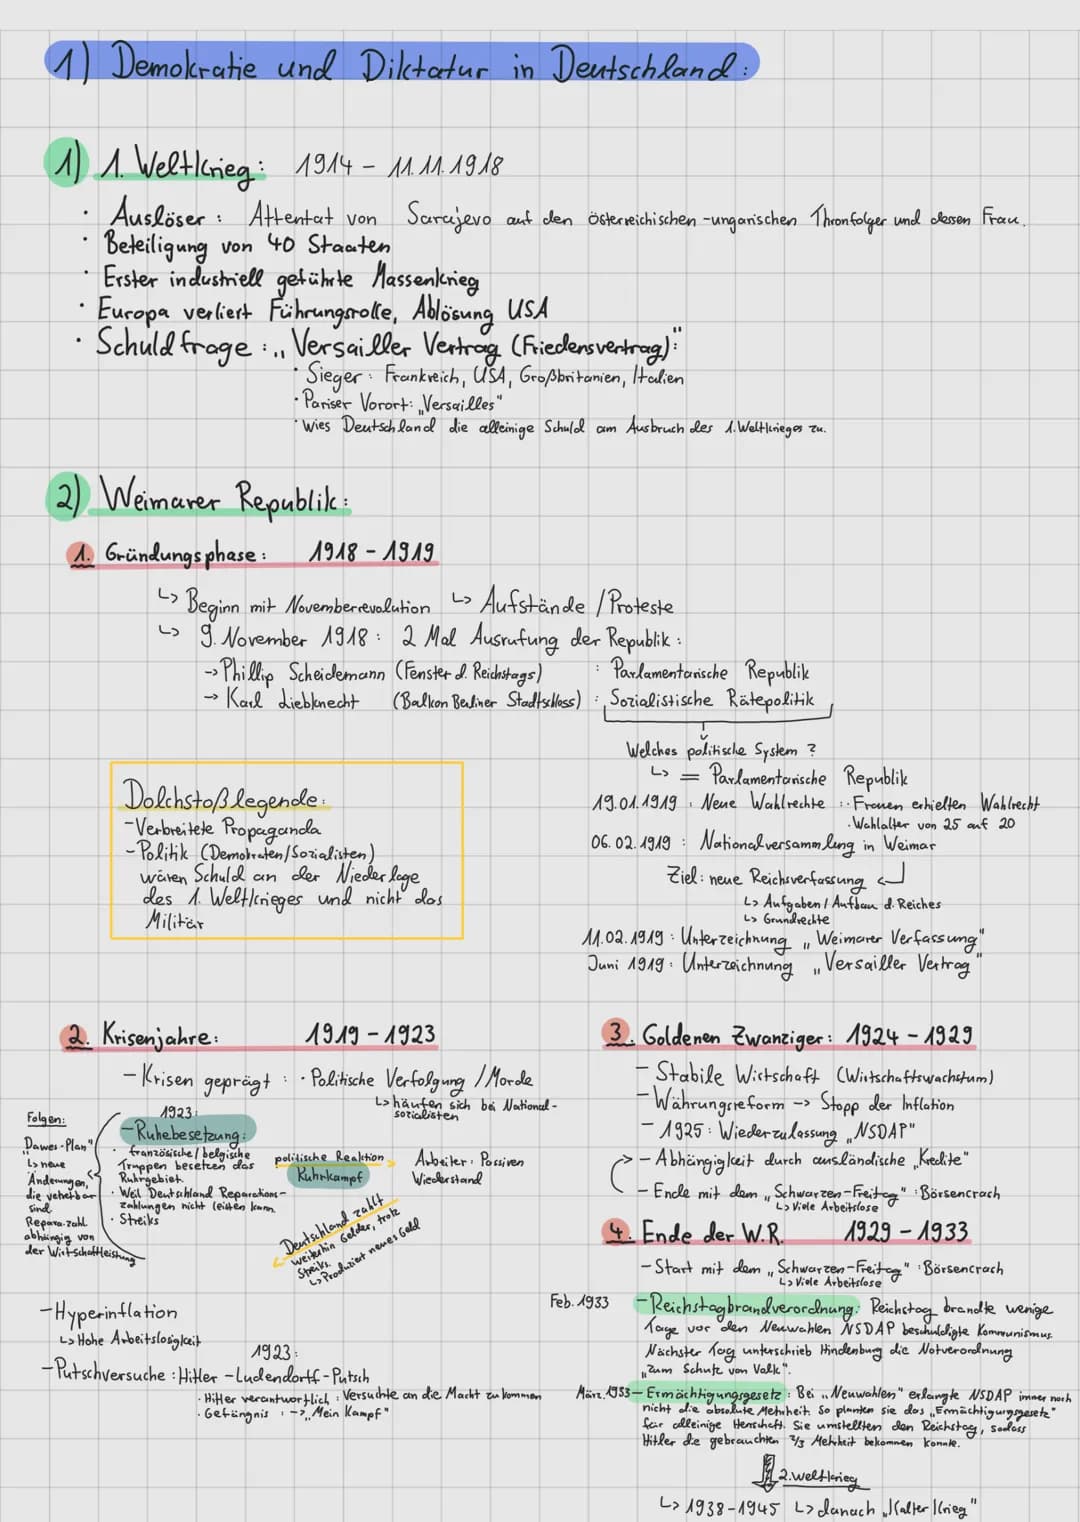 1) Demokratie und Diktatur in Deutschland:
1) 1. Weltkrieg: 1914 - 11.11.1918
· Auslöser: Attentat von Sarajevo auf den österreichischen-ungarischen Thronfolger und dessen Frau.
· Beteiligung von 40 Staaten
· Erster industriell geführte Massenkrieg
· Europa verliert Führungsrolle, Ablösung USA
· Schuldfrage: „Versailler Vertrag (Friedensvertrag):"
· Sieger: Frankreich, USA, Großbritanien, Italien
· Pariser Vorort: „Versailles"
· Wies Deutschland die alleinige Schuld am Ausbruch des 1.Weltkrieges zu.
2) Weimarer Republik:
1. Gründungsphase: 1918 - 1919
↳ Beginn mit Novemberrevolution ↳ Aufstände / Proteste
↳ 9. November 1918: 2 Mal Ausrufung der Republik:
→ Phillip Scheidemann (Fenster d. Reichstags) : Parlamentarische Republik
→ Karl Liebknecht (Balkon Berliner Stadtschloss) : Sozialistische Rätepolitik
Welches politische System ?
↳ = Parlamentarische Republik
19.01.1919: Neue Wahlrechte :· Frauen erhielten Wahlrecht
· Wahlalter von 25 auf 20
06.02.1919: Nationalversammlung in Weimar
Ziel: neue Reichsverfassung
↳ Aufgaben / Aufbau d. Reiches
↳ Grundrechte
11.02.1919: Unterzeichnung „Weimarer Verfassung"
Juni 1919: Unterzeichnung „Versailler Vertrag"
Dolchstoßlegende:
- Verbreitete Propaganda
- Politik (Demokraten/Sozialisten)
wären Schuld an der Niederlage
des 1. Weltkrieges und nicht das
Militär
2. Krisenjahre: 1919 - 1923
- Krisen geprägt : · Politische Verfolgung / Morde
↳ häufen sich bei National-
sozialisten
1923:
- Ruhebesetzung:
· französische / belgische
Truppen besetzen das
Ruhrgebiet.
· Weil Deutschland Reparations-
zahlungen nicht leisten kann.
· Streiks
Folgen:
„Dawes-Plan"
↳ neue
Änderungen,
die vehetbar
sind.
Repara.zahl.
abhängig von
der Wirtschaftleistung
politische Reaktion
Ruhrkampf
Arbeiter: Passiven
Wiederstand
Deutschland zahlt
weiterhin Gelder, trotz
Streiks.
↳ Produziert neues Geld
- Hyperinflation
↳ Hohe Arbeitslosigkeit
1923:
- Putschversuche: Hitler - Ludendorff - Putsch
· Hitler verantwortlich : Versuchte an die Macht zu kommen
· Gefängnis : → „Mein Kampf"
3. Goldenen Zwanziger: 1924 - 1929
- Stabile Wirtschaft (Wirtschaftswachstum)
- Währungsreform → Stopp der Inflation
- 1925: Wiederzulassung „NSDAP"
- Abhängigkeit durch ausländische „Kredite"
- Ende mit dem „Schwarzen-Freitag": Börsencrash
↳ Viele Arbeitslose
4. Ende der W.R. 1929 - 1933
- Start mit dem „Schwarzen-Freitag": Börsencrash
↳ Viele Arbeitslose
Feb. 1933 - Reichstagbrandverordnung: Reichstag brandte wenige
Tage vor den Neuwahlen NSDAP beschuldigte Kommunismus.
Nächster Tag unterschrieb Hindenburg die Notverordnung
„zum Schutz von Volk".
März.1933 - Ermächtigungsgesetz: Bei „Neuwahlen" erlangte NSDAP immer noch
nicht die absolute Mehrheit. So planten sie das „Ermächtigungsgesetz"
für alleinige Herrschaft. Sie umstellten den Reichstag, sodass
Hitler die gebrauchten 2/3 Mehrheit bekommen konnte.
2.Weltkrieg
↳ 1938-1945 ↳ danach „Kalter Krieg"